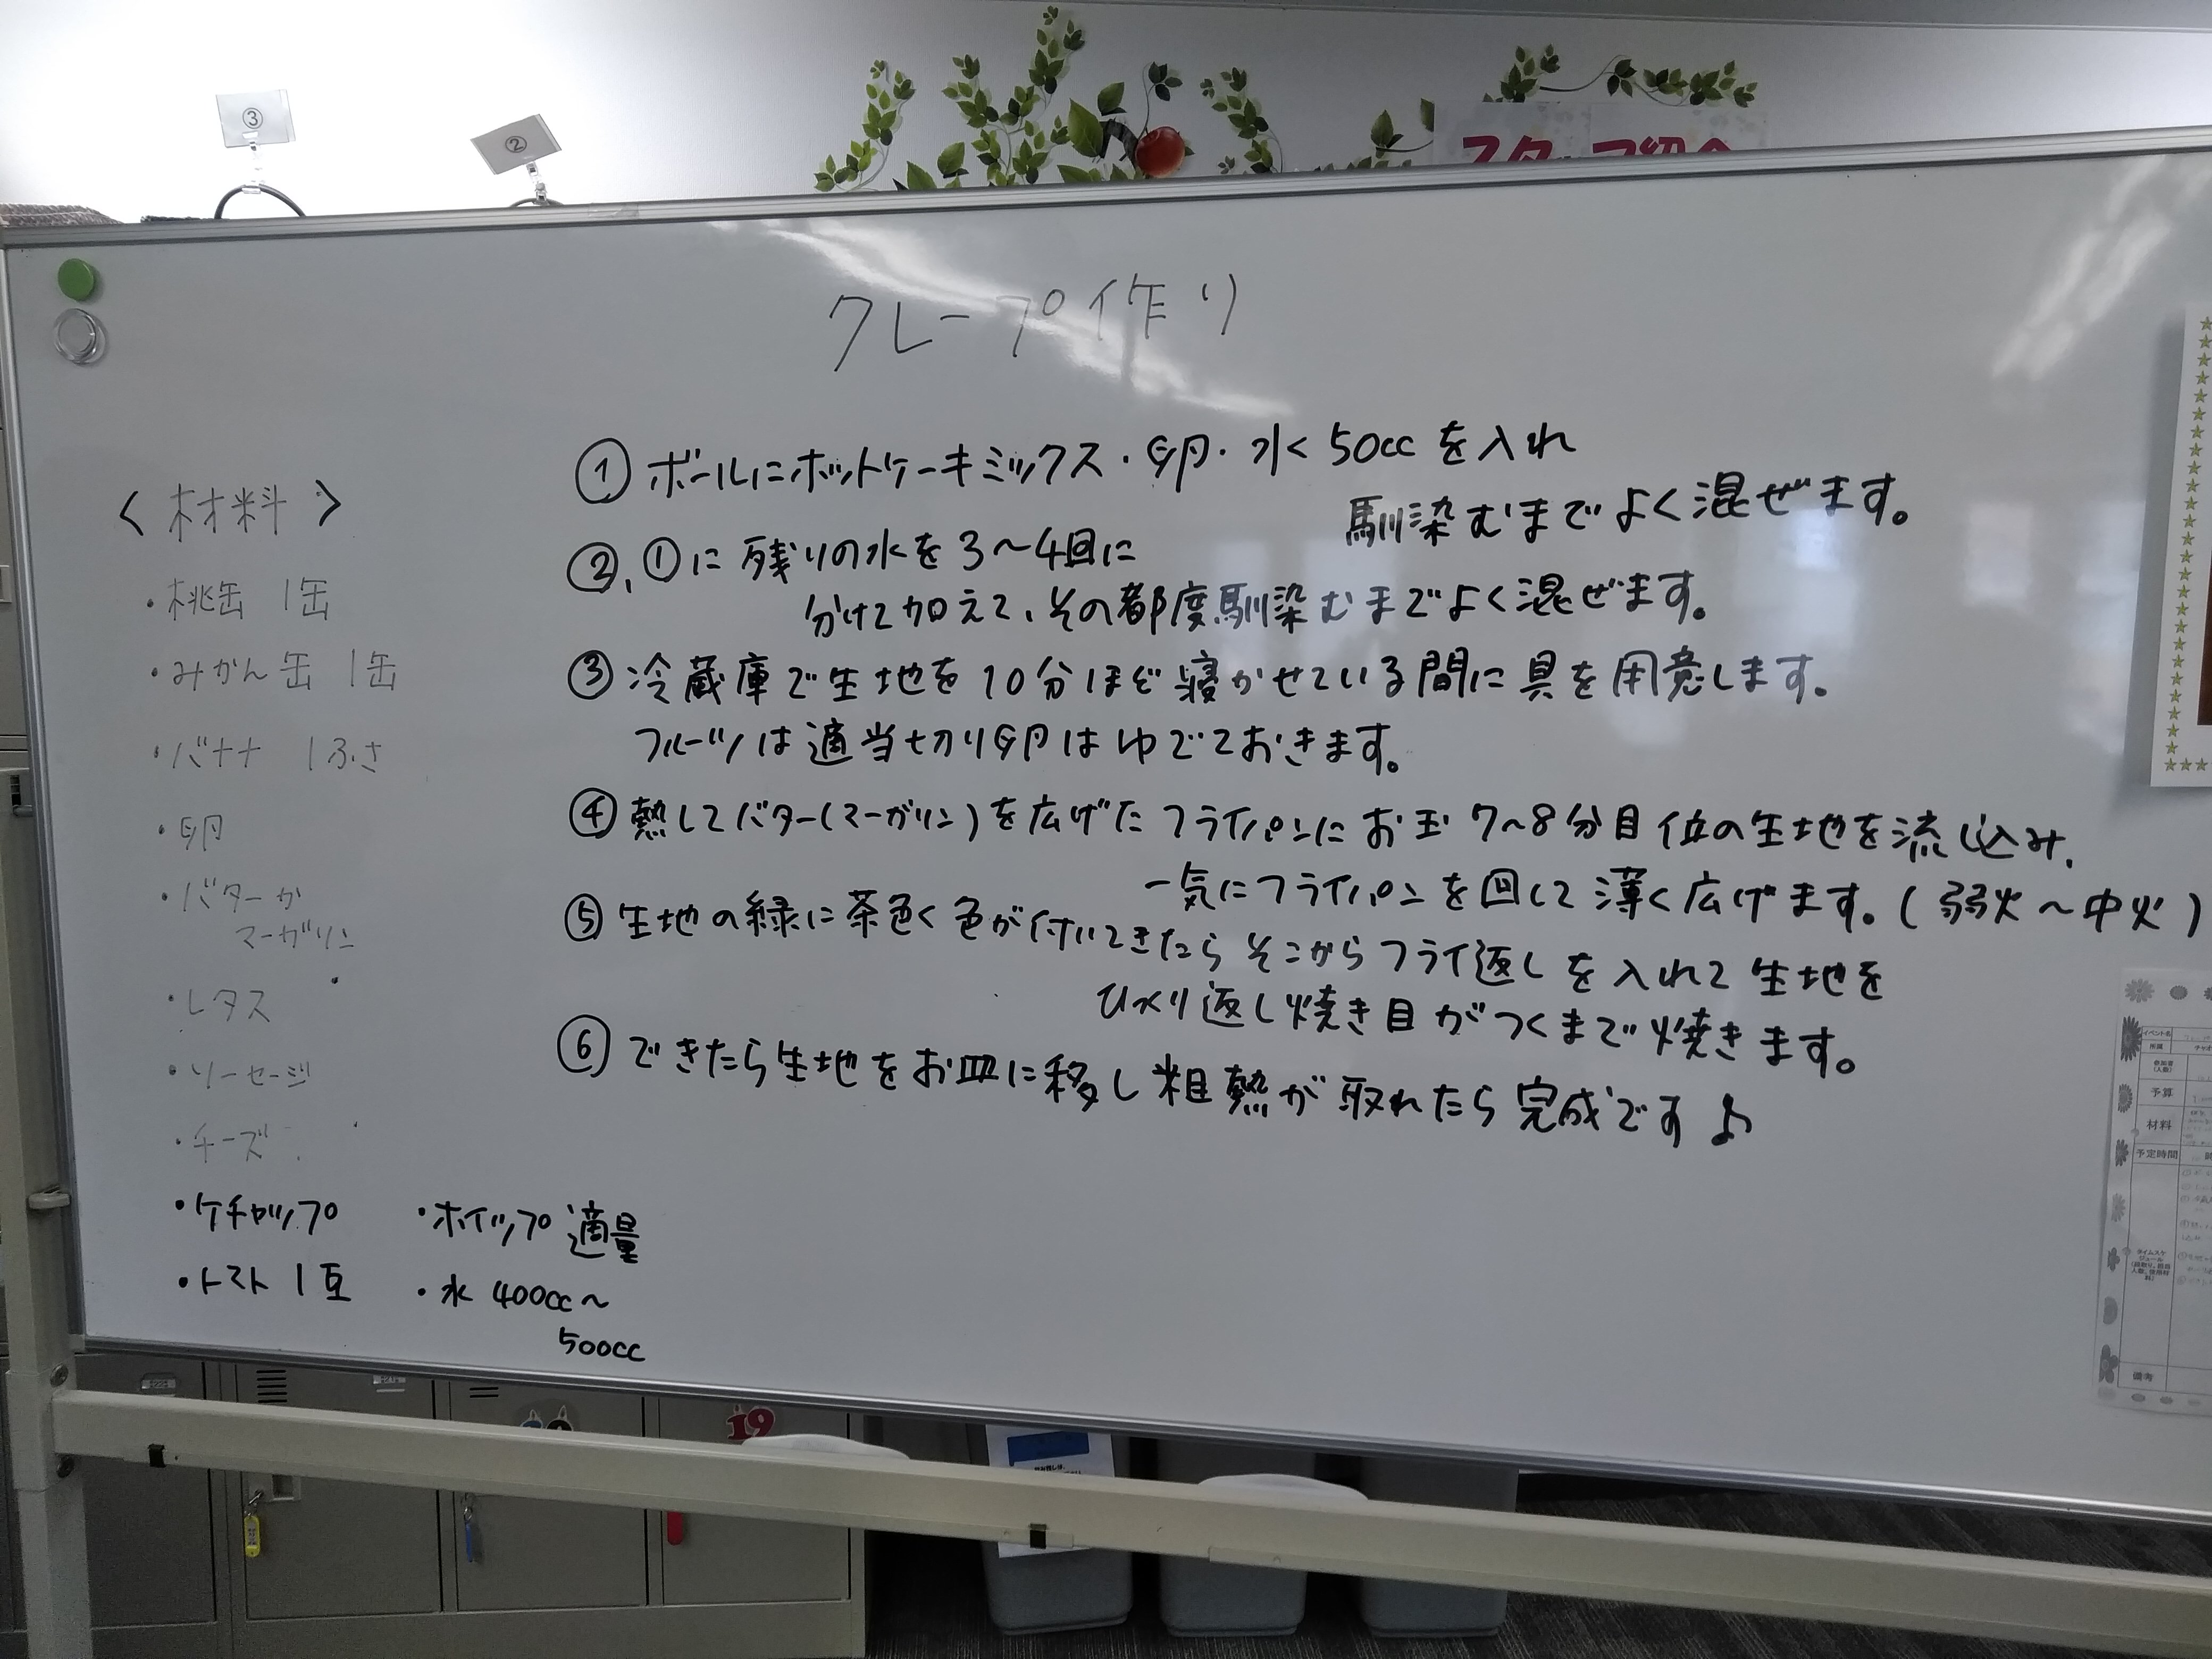 ③
②
クレープ作り
<材料>
・桃缶 1缶
・みかん缶 1缶
・バナナ 1ふさ
・卵
・バターか
マーガリン
・レタス
・ソーセージ
・チーズ
・ケチャップ
・トマト 1互
・ホイップ 適量
・水 400cc〜
500cc
① ボールにホットケーキミックス・卵・水く50ccを入れ
馴染むまでよく混ぜます。
②,①に残りの水を3〜4回に
分けて加えて、その都度馴染むまでよく混ぜます。
③ 冷蔵庫で生地を10分ほど寝かせている間に具を用意します。
フルーツは適当切り卵はゆでておきます。
④ 熱してバター(マーガリン)を広げたフライパンにお玉7〜8分目位の生地を流し込み、
一気にフライパンを回して薄く広げます。(弱火〜中火)
⑤ 生地の緑に茶色く色が付いてきたらそこからフライ返しを入れて生地を
ひっくり返し焼き目がつくまで焼きます。
⑥ できたら生地をお皿に移し粗熱が取れたら完成です♪
イベント名
所属
参加者
(人数)
予算
材料
予定時間
備考
19